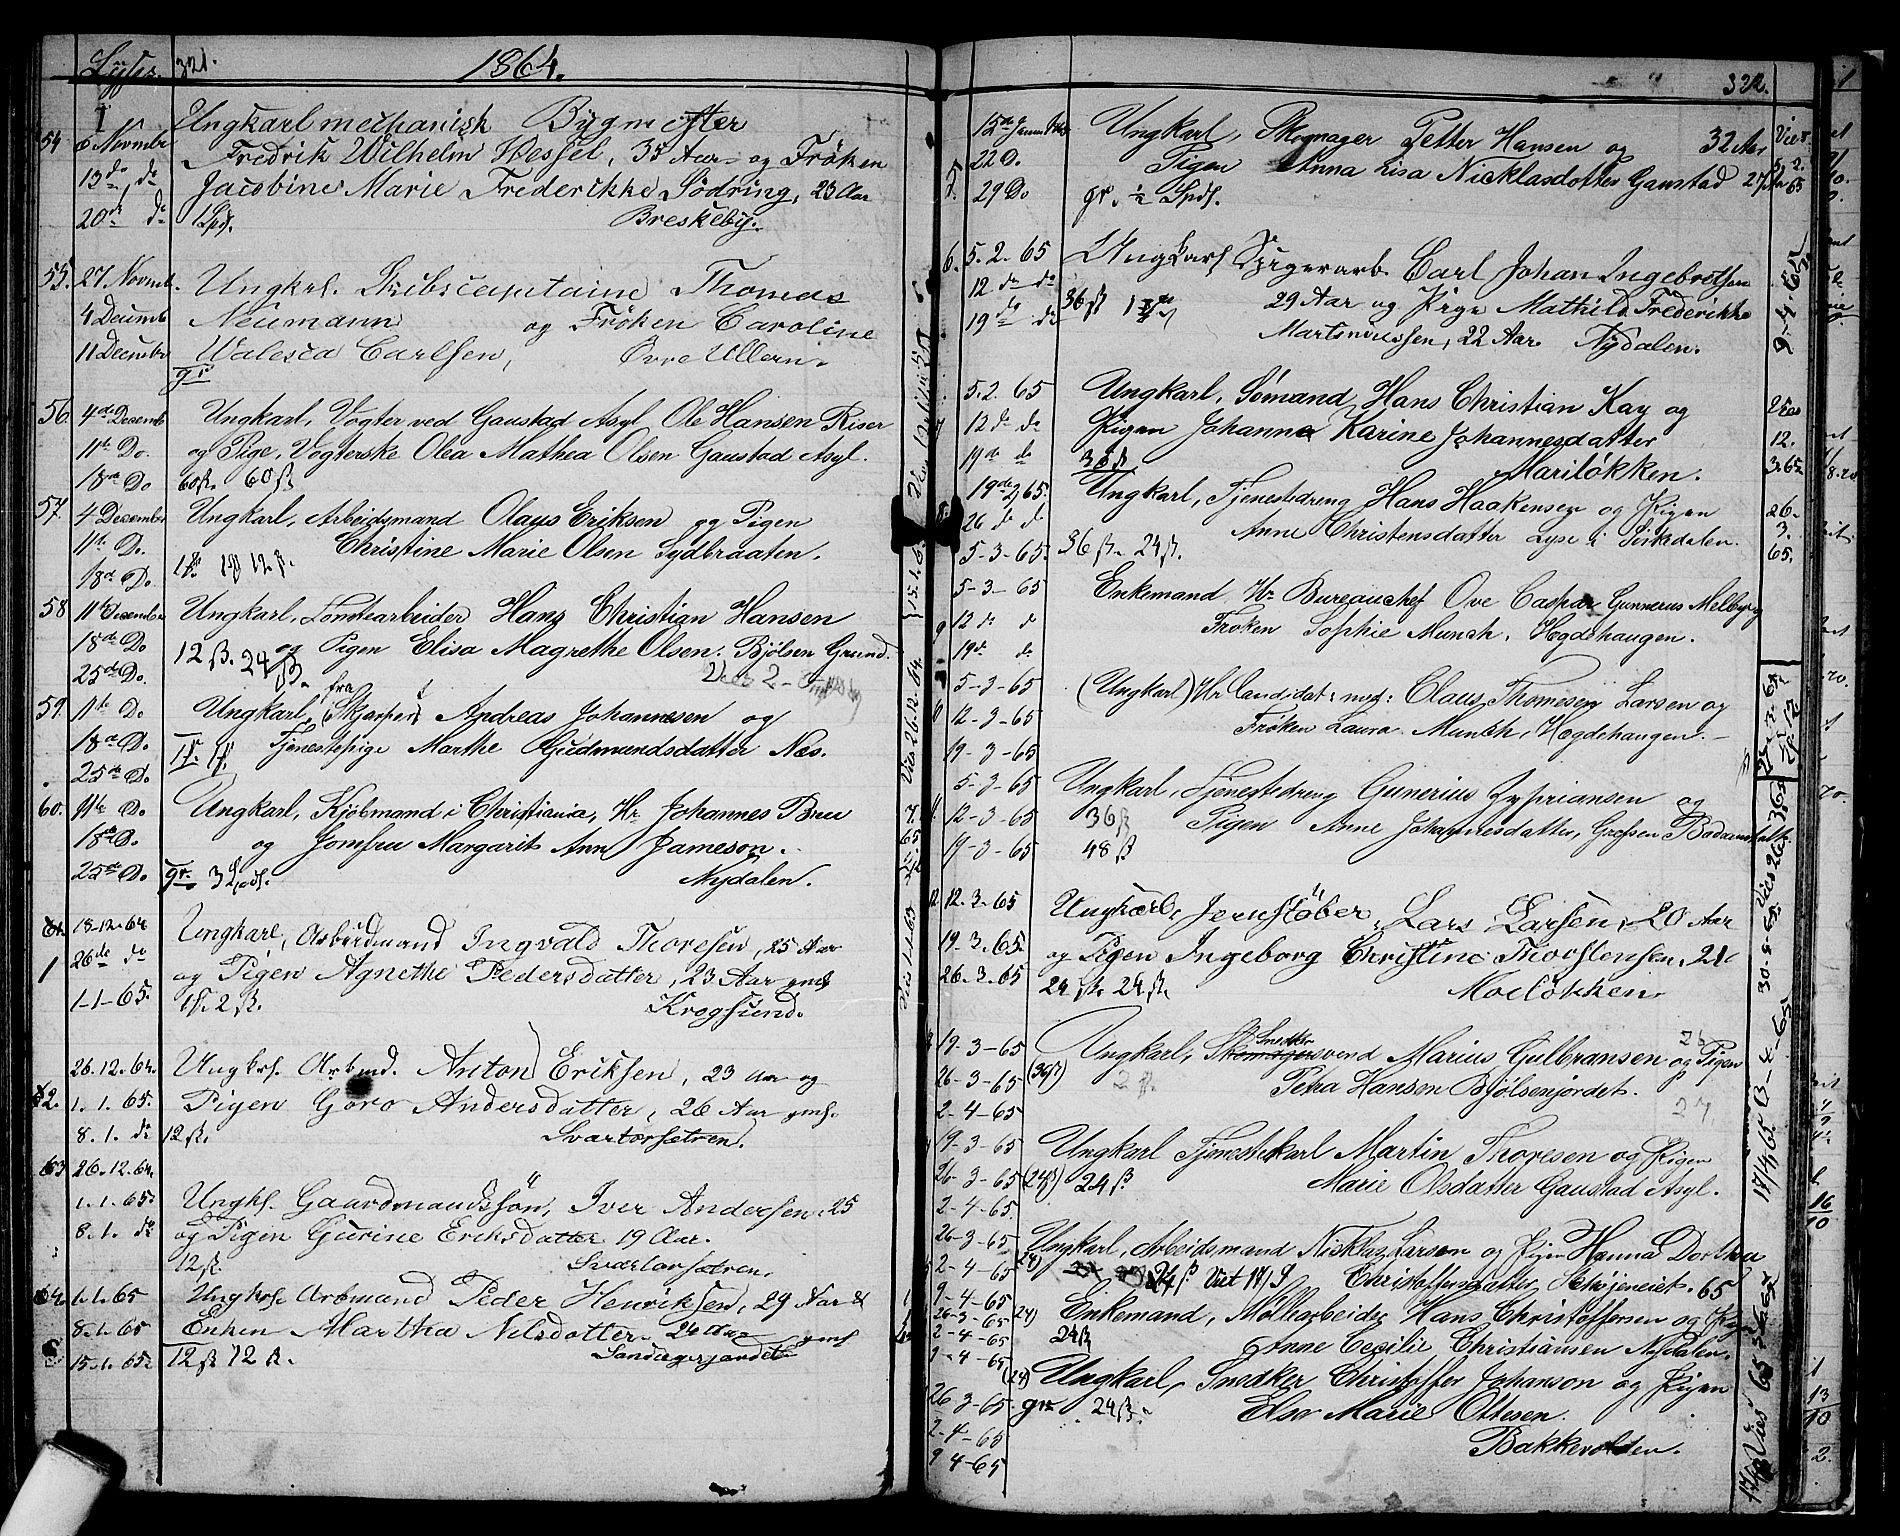 Lysn. 321. 1864.
54 6 Novmbr Ungkarl mechanisk Bygmester
13 de do Fredrik Wilhelm Wessel, 35 Aar og Frøken
20 de do Jacobine Marie Frederikke Södring, 23 Aar
1 Spd. Breskeby.
55. 27. Novmb. Ungkrl. Skibscapitaine Thomas
4 Decmb Neumann og Frøken Caroline
11 Decmbr Walesca Carlsen, Övre Ullern.
gr
56. 4de Decemb Ungkarl, Vogter ved Gaustad Asyl Ole Hansen Riser
11te Do. og Pige, Vogterske Olea Mathea Olsen Gaustad Asyl.
18de Do 60 ß. 60 ß
57. 4 December Ungkarl, Arbeidsmand Olaus Eriksen og Pigen
11te Do. Christine Marie Olsen Sydbraaten.
18de Do 12 ß.
58 11te December Ungkarl, Tomtearbeider Hans Christian Hansen
18de Do og Pigen Elisa Magrethe Olsen. Bjølsen Grund.
25de Do. 12 ß. 24 ß.
59. 11te Do fra
Ungkarl, Skjærpers Andreas Johannesen og
18de Do Tjenestepige Marthe Gudmundsdatter Næs.
25de Do
60. 11te Do Ungkarl, Kjöbmand i Christiania, Hr. Johannes Bruu
18de Do. og Jomfru Margarit Ann Jameson.
25de Do gr. 3 Spds. Nydalen.
61. 18-12-64 Ungkarl, Arbeidmand Ingvald Thoresen, 25 Aar
26de do og Pigen Agnethe Pedersdatter, 23 Aar
1-1-65. 2 ß. Krogsund.
26.12.64. Ungkrl. Arbmd. Anton Eriksen, 23 Aar og
62. 1.1.65. Pigen Goro Andersdatter, 26 Aar
8.1. do 12 ß. Svartorsætren.
63 26.12.64.
1.1.65. Ungkl. Gaardmandssön, Iver Andersen, 25
8.1. do og Pigen Gurine Eriksdatter 19 Aar.
12 ß. Svartorsætren.
64. 1.1.65 Ungkrl. Arbmand Peder Henriksen, 29 Aar &
8.1.65 Enken Martha Nilsdotter
15.1.65. 12 ß 12 ß.
322.
5. Ungkarl, Skomager Petter Hansen og 32 Aar
22 D. Pigen Anna Lisa Nicklasdotter Gaustad
29 Do gr. ½ Spd.
6. 5.2.65 Ungkarl Spigerarb. Carl Johan Ingebretsen
12 de do 36 ß 29 Aar og Pige Mathild Frederikke
19 do do Martinussen, 22 Aar. Nydalen.
5.2.65 Ungkarl, Sømand Hans Christian Kay og
12 do do Pigen Johanne Karine Johannesdatter
19 de do 36 ß Mariløkken.
19de 2 65. Ungkarl, Tjenestedreng Hans Haakensen og Pigen
26 do d Anne Christensdatter Lyse i Sørkdalen.
5-3-65. 36 ß. 24 ß.
5-3-65 Enkemand, Hr Bureauchef Ove Caspar Gunnerus Melby og
12 do d Frøken Sophie Munch. Hegdehaugen.
19de do
5-3-65 (Ungkarl) Hr. Candidat: med: Claus Thomesen Larsen og
12-3-65 Frøken Laura Munch, Hegdehaugen.
19-3-65
5-3-65 Ungkarl, Tjenestedreng Gunerius Zypriansen og
12-3-65 36 ß Pigen Anne Johannesdatter,
19-3-65 48 ß
12. 12.3.65 Ungkarl, Jernstöber, Lars Larsen, 20 Aar
19.3.65. og Pigen Ingeborg Christine Thorstensen, 21
26.3.65 24 ß. 24 ß.
19-3-65 Ungkarl, Skomagersvend Snedker Marius Gulbransen og Pigen
26-3-65 (36 ß) Petra Hansen Bjølsenjordet.
2-4-65
19-3-65 Ungkarl Tjenestekarl Martin Thoresen og Pigen
26-3-65 (24 ß) 24 ß Marie Olsdatter Gaustad Asyl.
2-4-65.
26-3-65 Ungkarl, Arbeidsmand Nicklas Larsen og Pigen Hanna Dorthea
2-4-65 (24) 24 ß Viet 17/9 65 Christoffersdatter
9-4-65
26-3-65 (24) Enkemand, Møllearbeider Hans Christoffersen og Pigen
2-4-65 24 ß Anne Cecilie Christiansen Nydalen.
9-4-65
(24) Ungkarl, Snedker Christoffer Johanson og Pigen
26-3-65 24 ß. Else Marie Ottesen.
2-4-65 Bakkevolden.
9 4-65